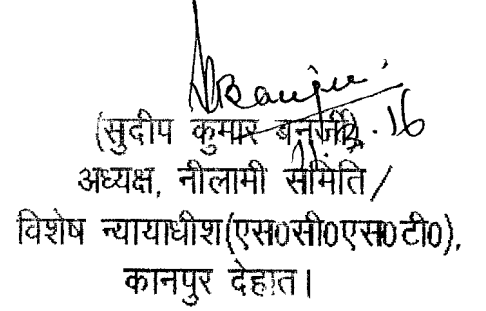 (सुदीप कुमार बनर्जी)
अध्यक्ष, नीलामी समिति /
विशेष न्यायाधीश(एस0सी0एस0टी0),
कानपुर देहात।